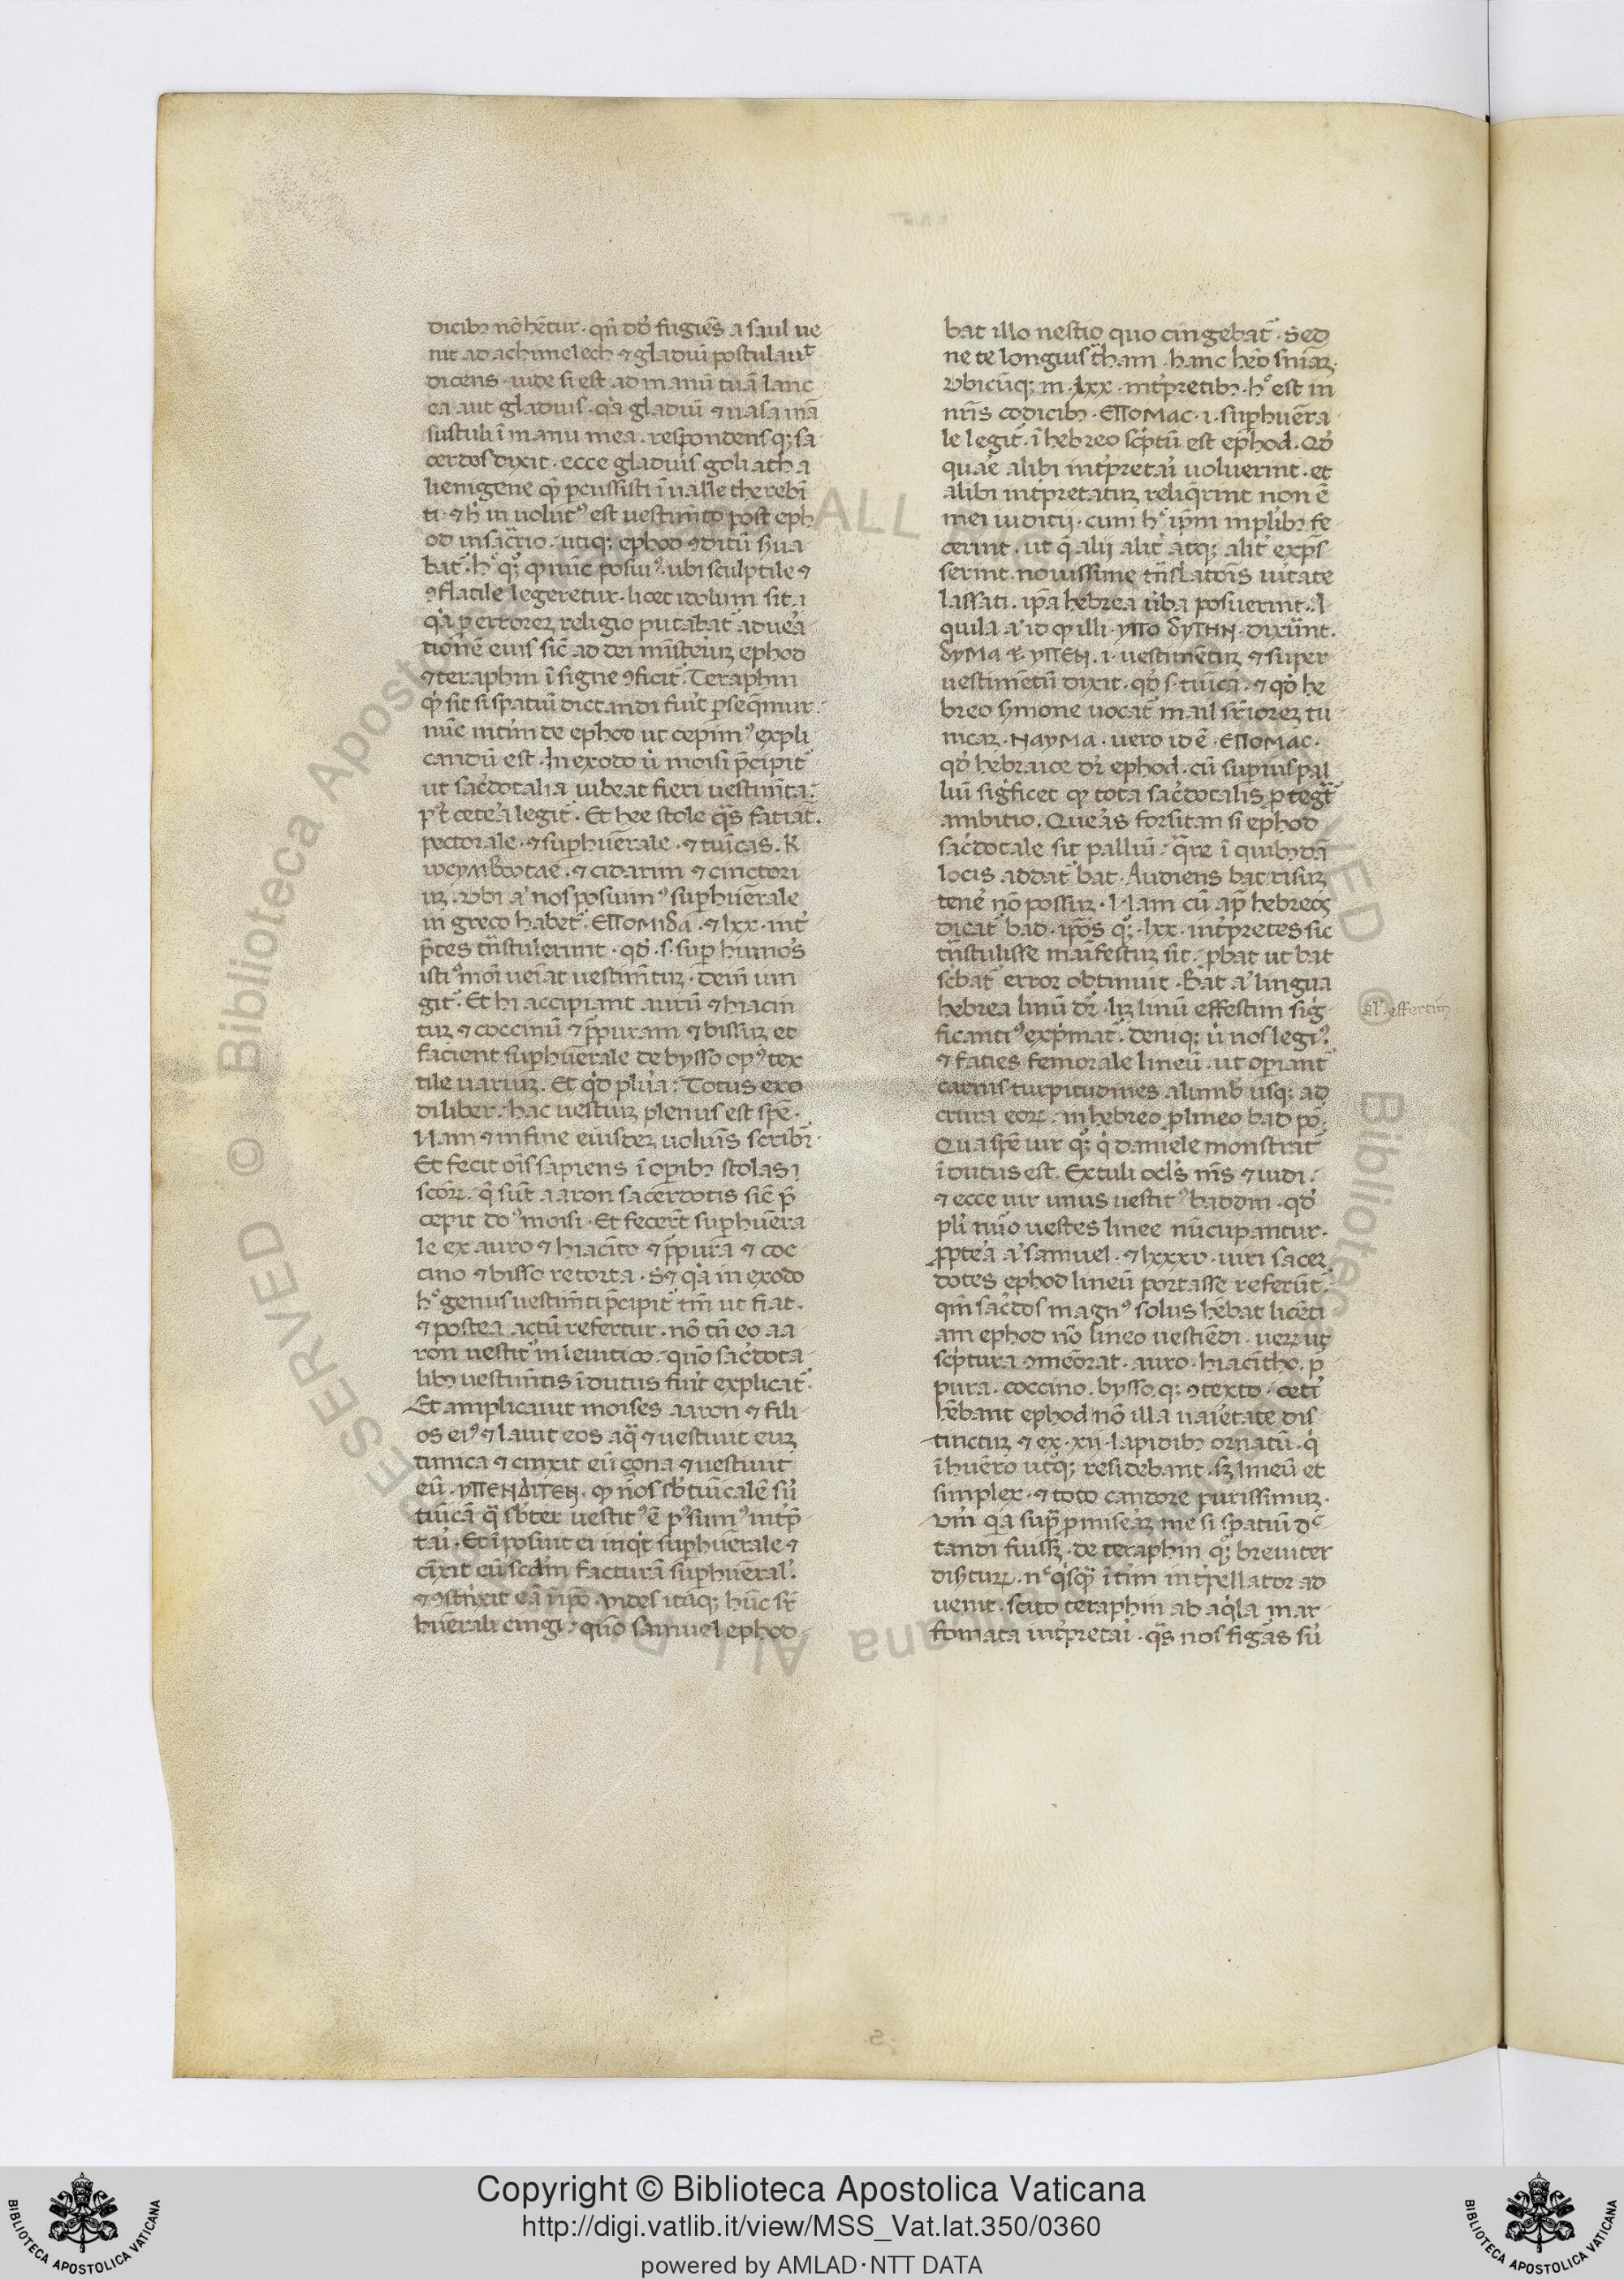 dicibꝫ nō hētur · qn̄ dō fugiēs a saul ue
nit ad achimelech ⁊ gladiū postulauͭ
dicens · uide si est ad manū tuā lanc
ea aut gladius · qa gladiū ⁊ uasa mā
sustuli ī manu mea · respondensqꝫ sa
cerdos dixit · ecce gladius goliath a
lienigene qͤ ꝑcussisti ī ualle therebī
ti · ⁊ hͥ in uolutꝰ est uestimto post eph
od in sacrio · utiqꝫ ephod ꝯditū ẜua
bat᷑ · hͦ qͦꝫ qͦ nūc posuiꝰ · ubi sculptile ⁊
ꝯflatile legeretur · licet idolum sit · i
qa ꝑ errorem religio putabat᷑ a duea
tionē eius sic̄ ad dei mīsteriuꝫ ephod
⁊ teraphin ī signe ꝯficit᷑ · Teraphin
qͥ sit si spatiū dictandi fuīt ꝑseq̄mur ·
nūc interim de ephod ut cepimꝰ expli
candū est · In exodo ù moisi p̄cipit᷑
ut sacdotalia iubeat fieri uestim̄ta ·
pꝰt cetea legit᷑ · Et hee stole qͣs fatiat᷑ ·
pectorale · ⁊ suꝑhūerale · ⁊ tuīcas · K
ωcymBωtae · ⁊ cidarim ⁊ cinctori
uꝫ · ubi aͥ nos posuimꝰ suꝑhūerale
in greco habet᷑ · EΠOMIδA · ⁊ lxx · int᷑
p̄tes tn̄stulerunt · qd · s · suꝑ humos
istiꝰmōi ueīat uestim̄tuꝫ · Dein iun
git᷑ · Et hi accipiant aurū ⁊ hiacin
tuꝫ ⁊ coccinū ⁊ pp̄uram ⁊ bissuꝫ et
facient suꝑhūerale de bysso opꝰ tex
tile uariuꝫ · Et qd pluͣa · Totus exo
di liber · hac uestiuꝫ plenus est spē ·
Nam ⁊ in fine eiusdeꝫ uoluīs scribī ·
Et fecit oīs sapiens ī oꝑibꝫ stolas ·
scōꝝ · q̄ sūt aaron sacerdotis sic̄ p̄
cepit doꝰ moisi · Et fecert̄ suꝑhūera
le ex auro ⁊ hiacīto ⁊ pp̄urā ⁊ coc
cino ⁊ bisso retorta · Sꝫ qa in exodo
hͦ genus uestim̄ti p̄cipit᷑ tm̄ ut fiat ·
⁊ postea actū refertur · nō tn̄ eo aa
ron uestit᷑ in leuitico · quō sac̄dota
libꝫ uestim̄tis īdutus fuīt explicat᷑ ·
Et amplicauit moises aaron ⁊ fili
os eiꝰ ⁊ lauit eos aqͣ ⁊ uestiuit euꝫ
tunica ⁊ cinxit eū çona ⁊ uestiuit
eū · yΠENΔITEN · qͥ nos sb̄tuīcalē siͥ
tuīcā qͣ sb̄ter uestitꝰ ē pꝰsumꝰ int᷑p̄
tai · Et īposuit ei inqͥt suꝑhūerale ⁊
cīxit eū scdm̄ facturā suꝑhūeral᷑ ·
⁊ ꝯstrixit eā ī ipō · Vides itaqꝫ hūc sr̄
hūerali cingi · quō samuel ephod
bat illo uestio quo cingebat᷑ · Sed
ne te longius tͣham · hanc heō sn̄iaꝫ ·
Vbicūqꝫ in · lxx · int᷑pretibꝫ · hͦ est in
nr̄is codicibꝫ · EΠOMAC · i · suꝑhuēra
le legit᷑ · ī hebreo scp̄tū est ephod · Qd
quāe alibi int᷑pretai uoluerint · et
alibi int᷑pretatuꝫ reliq̄rint non ē
mei iuditij · cum hͦ ip̄m in pl᷑ibꝫ fe
cerint · ut q̄ alij alit᷑ atqꝫ alit᷑ exp̄s
serint · nouissime tn̄slatoīs uitate
lassati · ip̄a hebrea ùba posuerint · A
quila aͥ id qͥ illi · yΠO δyTHN · dixūnt ·
δyMA ⁊ yΠEN · i · uestimētuꝫ ⁊ super
uestimētū dixit · qd · s · tuīca · ⁊ qd he
breo ẜmone uocat᷑ mail sr̄ioreꝫ tu
nicaꝫ · NAyMA · uero id ē · EΠOMAC ·
qd hebraice dr̄ ephod · cū suꝑius pal
liū sigficet qͥ tota sac̄dotalis ꝓtegit᷑
ambitio · Queās forsitan si ephod
sac̄dotale sit palliū · qͣre ī quibꝫdā
locis addat᷑ bat · Audiens bat risuꝫ
tenē nō possuꝫ · Nam cū ap̄ hebreos
dicat᷑ bad · ip̄os qͦꝫ · lxx · int᷑pretes sic
tn̄stulisse maīfestuꝫ sit · ꝓbat ut bat
sc̄bat᷑ error obtinuit · Bat aͥ lingua
hebrea linū dr̄ · lꝫ linū effestim sig
ficantiꝰ exp̄mat᷑ · deniqꝫ ù nos legiꝰ ·
⁊ faties femorale lineū · ut oꝑiant᷑
carnis turpitudines a lumb᷑ usqꝫ ad
crura eoꝝ · in hebreo ꝓ lineo bad pō ·
Qua spē uir qͦꝫ q̇ daniele monstrat᷑
īdutus est · Extuli ocl̓s m̄s ⁊ uidi ·
⁊ ecce uir unus uestitꝰ baddin · qd
pl᷑i nūo uestes linee nūcupantur ·
ꝓptea aͥ samuel · ⁊ lxxxv · uiri sacer
dotes ephod lineū portasse referūt᷑ ·
qm̄ sac̄dos magnꝰ solus hēbat licēti
am ephod nō lineo uestiēdi · ueꝝ ut
scp̄tura ꝯmeōrat · auro · hiacītho · p̄
pura · coccino · byssoqꝫ ꝯtexto · cet᷑i
hēbant ephod nō illa uaietate dis
tinctuꝫ ⁊ ex · xij · lapidibꝫ ornatū · q̇
ī huēro utqꝫ residebant · sꝫ lineū et
simplex · ⁊ toto candore purissimuꝫ ·
Vm̄ qa supͣ ꝓmiseaꝫ me si spatiū dͨ
tandi fuissꝫ · de teraphin qͦꝫ breuiter
disẜtuꝝ · nͨ qͥsqͣ īt᷑im int᷑pellator ad
uenit · scito teraphin ab aqͥla mar
fomata int᷑pretai · qͣs nos figās siͥ
al᷑ effertim
Copyright © Biblioteca Apostolica Vaticana
http://digi.vatlib.it/view/MSS_Vat.lat.350/0360
powered by AMLAD·NTT DATA
BIBLIOTECA APOSTOLICA VATICANA
BIBLIOTECA APOSTOLICA VATICANA